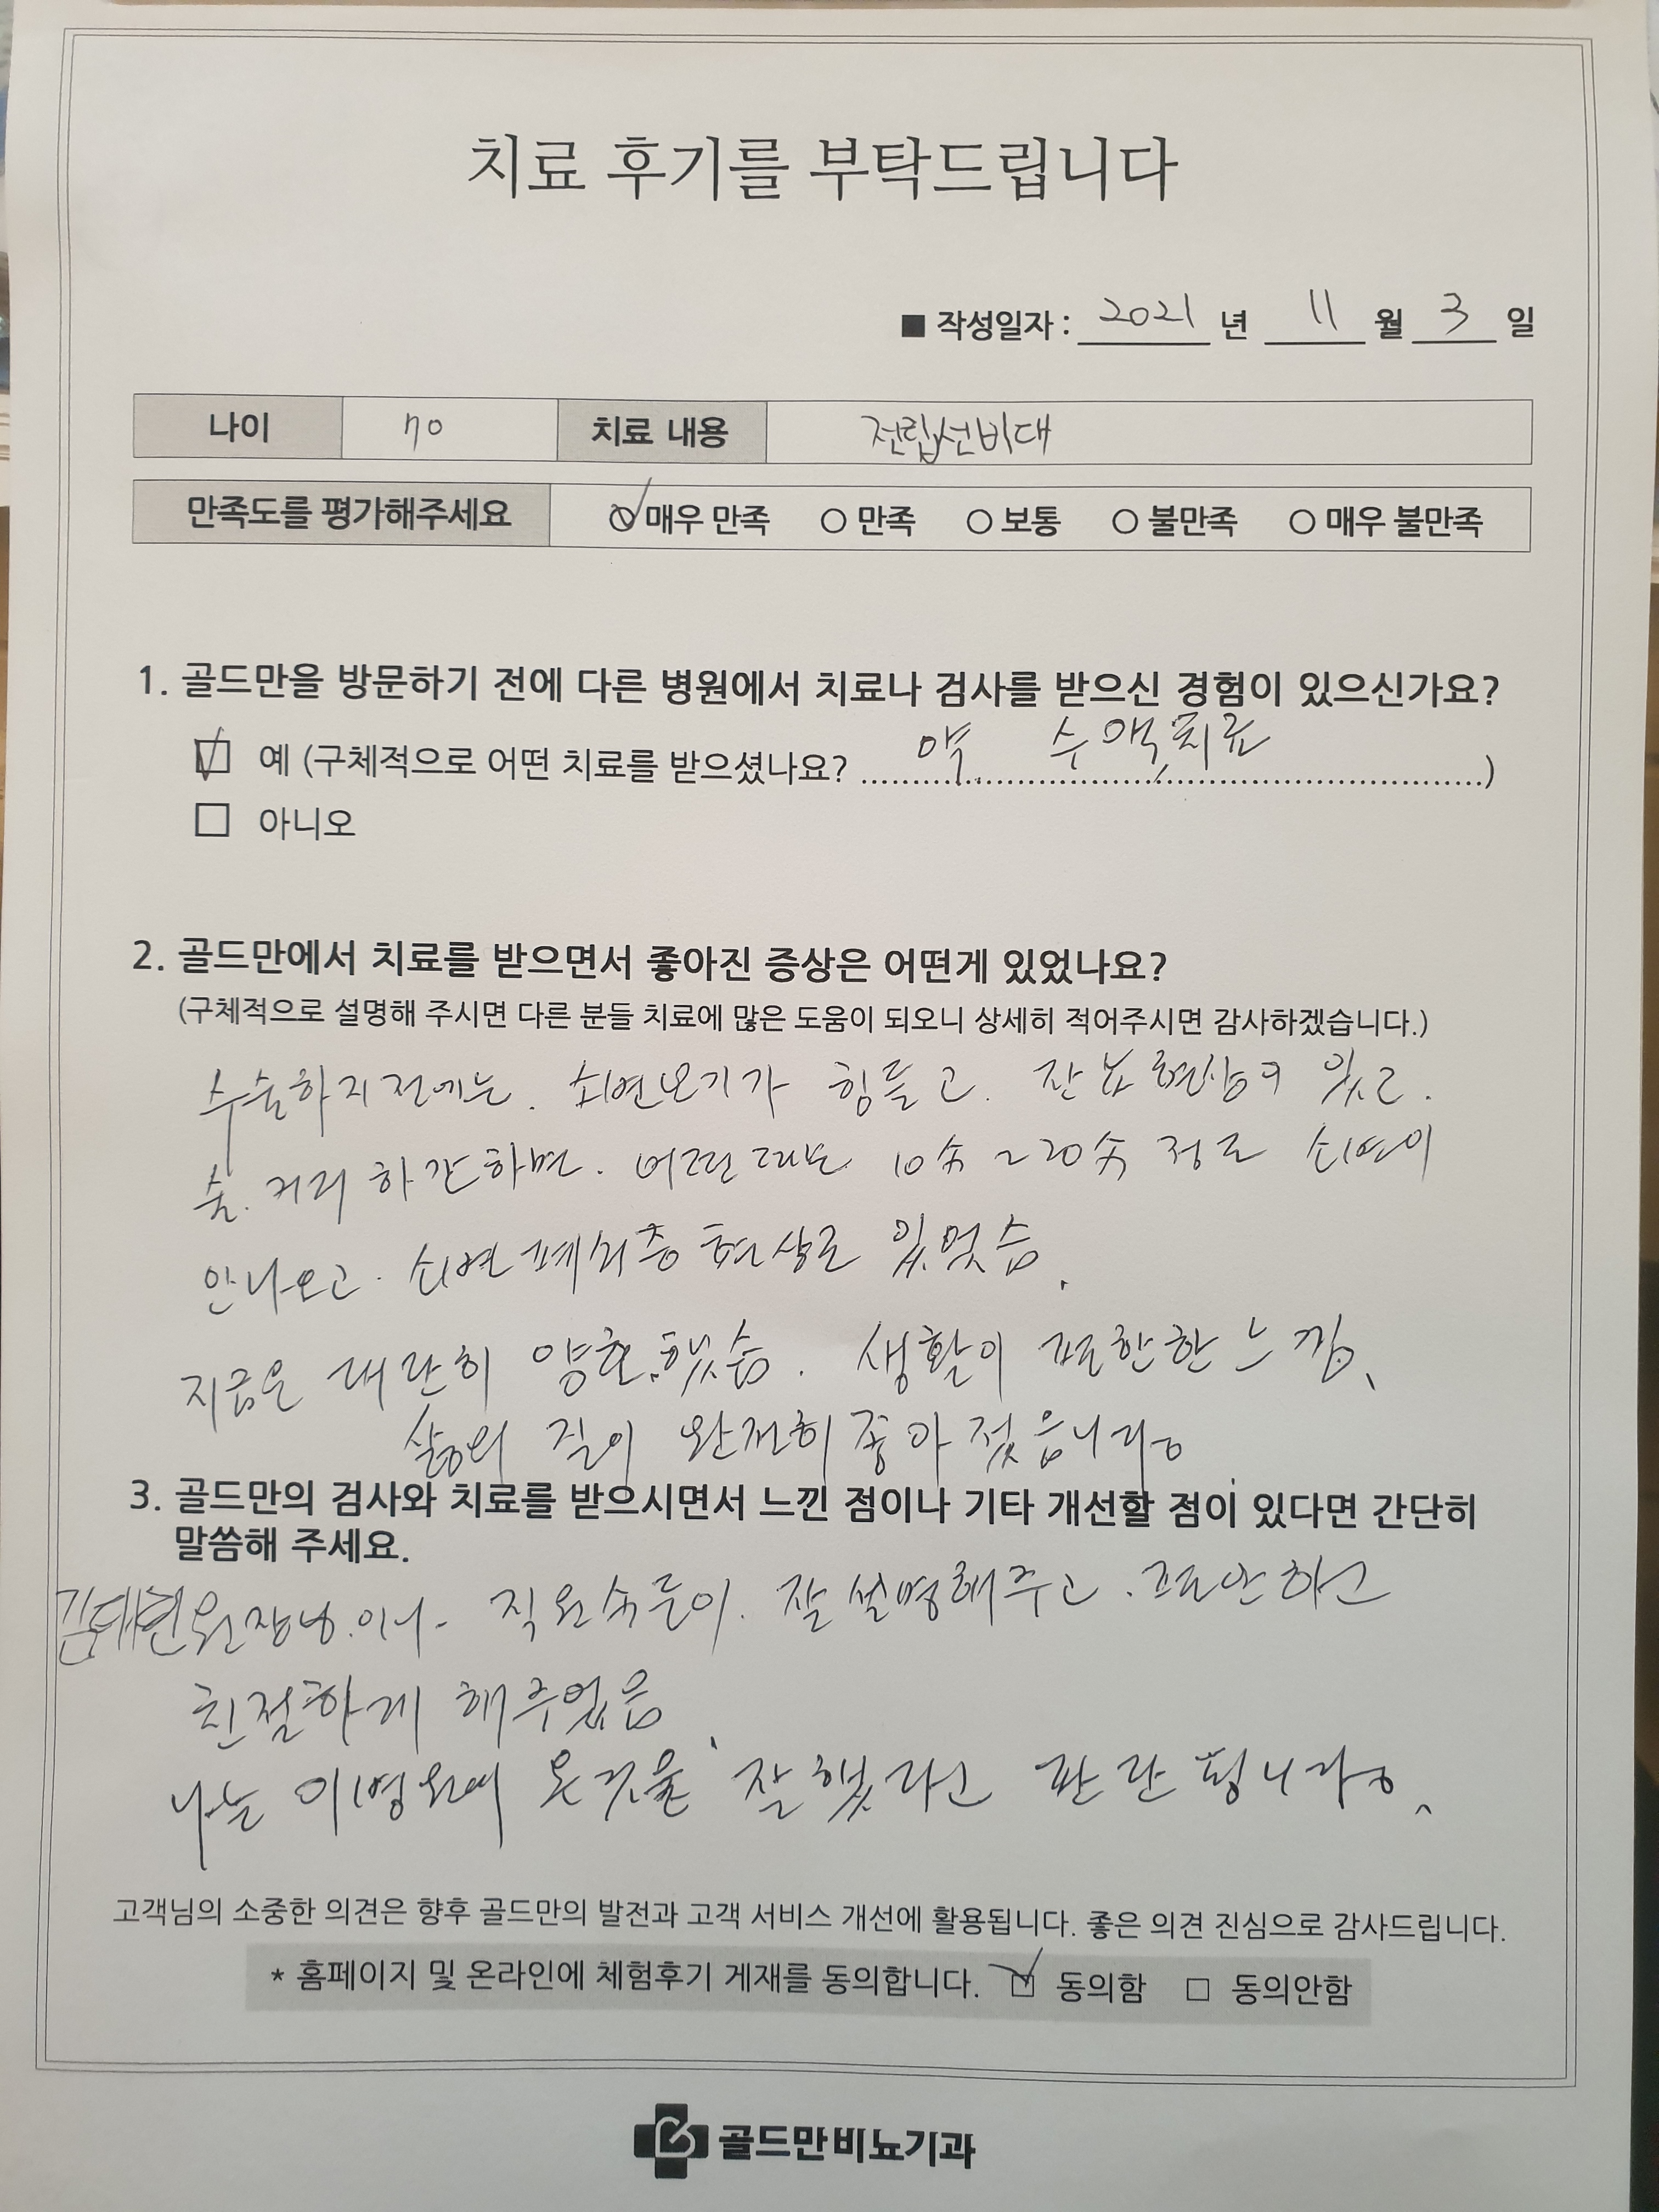 치료 후기를 부탁드립니다
■ 작성일자 : 2021 년 11 월 3 일
나이 70 치료 내용 전립선비대
만족도를 평가해주세요 ○ 매우 만족 ○ 만족 ○ 보통 ○ 불만족 ○ 매우 불만족
1. 골드만을 방문하기 전에 다른 병원에서 치료나 검사를 받으신 경험이 있으신가요?
☑ 예 (구체적으로 어떤 치료를 받으셨나요? 약. 수액치료)
□ 아니오
2. 골드만에서 치료를 받으면서 좋아진 증상은 어떤게 있었나요?
(구체적으로 설명해 주시면 다른 분들 치료에 많은 도움이 되오니 상세히 적어주시면 감사하겠습니다.)
수술하기전에는. 소변보기가 힘들고. 잔뇨현상이 있고.
술. 거리 하면. 어떤 때는 10分~20分 정도 소변이
안나오고. 소변폐쇄증 현상도 있었슴.
지금은 대단히 양호.했슴. 생활이 편안한 느낌.
삶의 질이 완전히 좋아 졌읍니다.
3. 골드만의 검사와 치료를 받으시면서 느낀 점이나 기타 개선할 점이 있다면 간단히
말씀해 주세요.
김대현원장님.이나- 직원分들이. 잘 설명해주고. 편안하고
친절하게 해주었음.
나는 이병원에 온것을 잘했다고 판단 됩니다.
고객님의 소중한 의견은 향후 골드만의 발전과 고객 서비스 개선에 활용됩니다. 좋은 의견 진심으로 감사드립니다.
* 홈페이지 및 온라인에 체험후기 게재를 동의합니다. ☑ 동의함 □ 동의안함
골드만비뇨기과